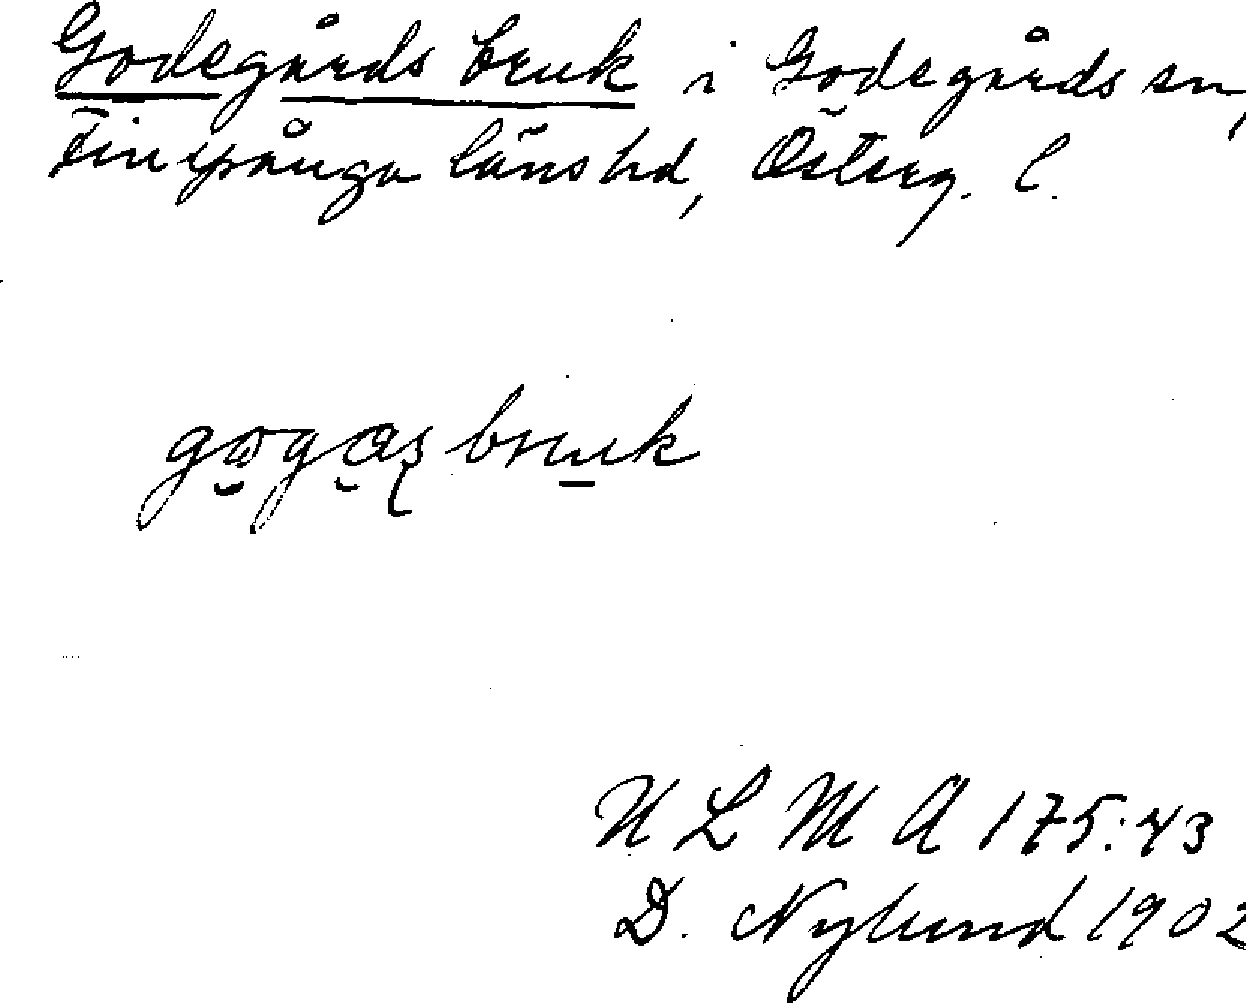 Godegårds bruk i Godegårds sn,
Finspånga länshd, Österg. l.
bruk
ULMA 175:43
D. Nylund 1902